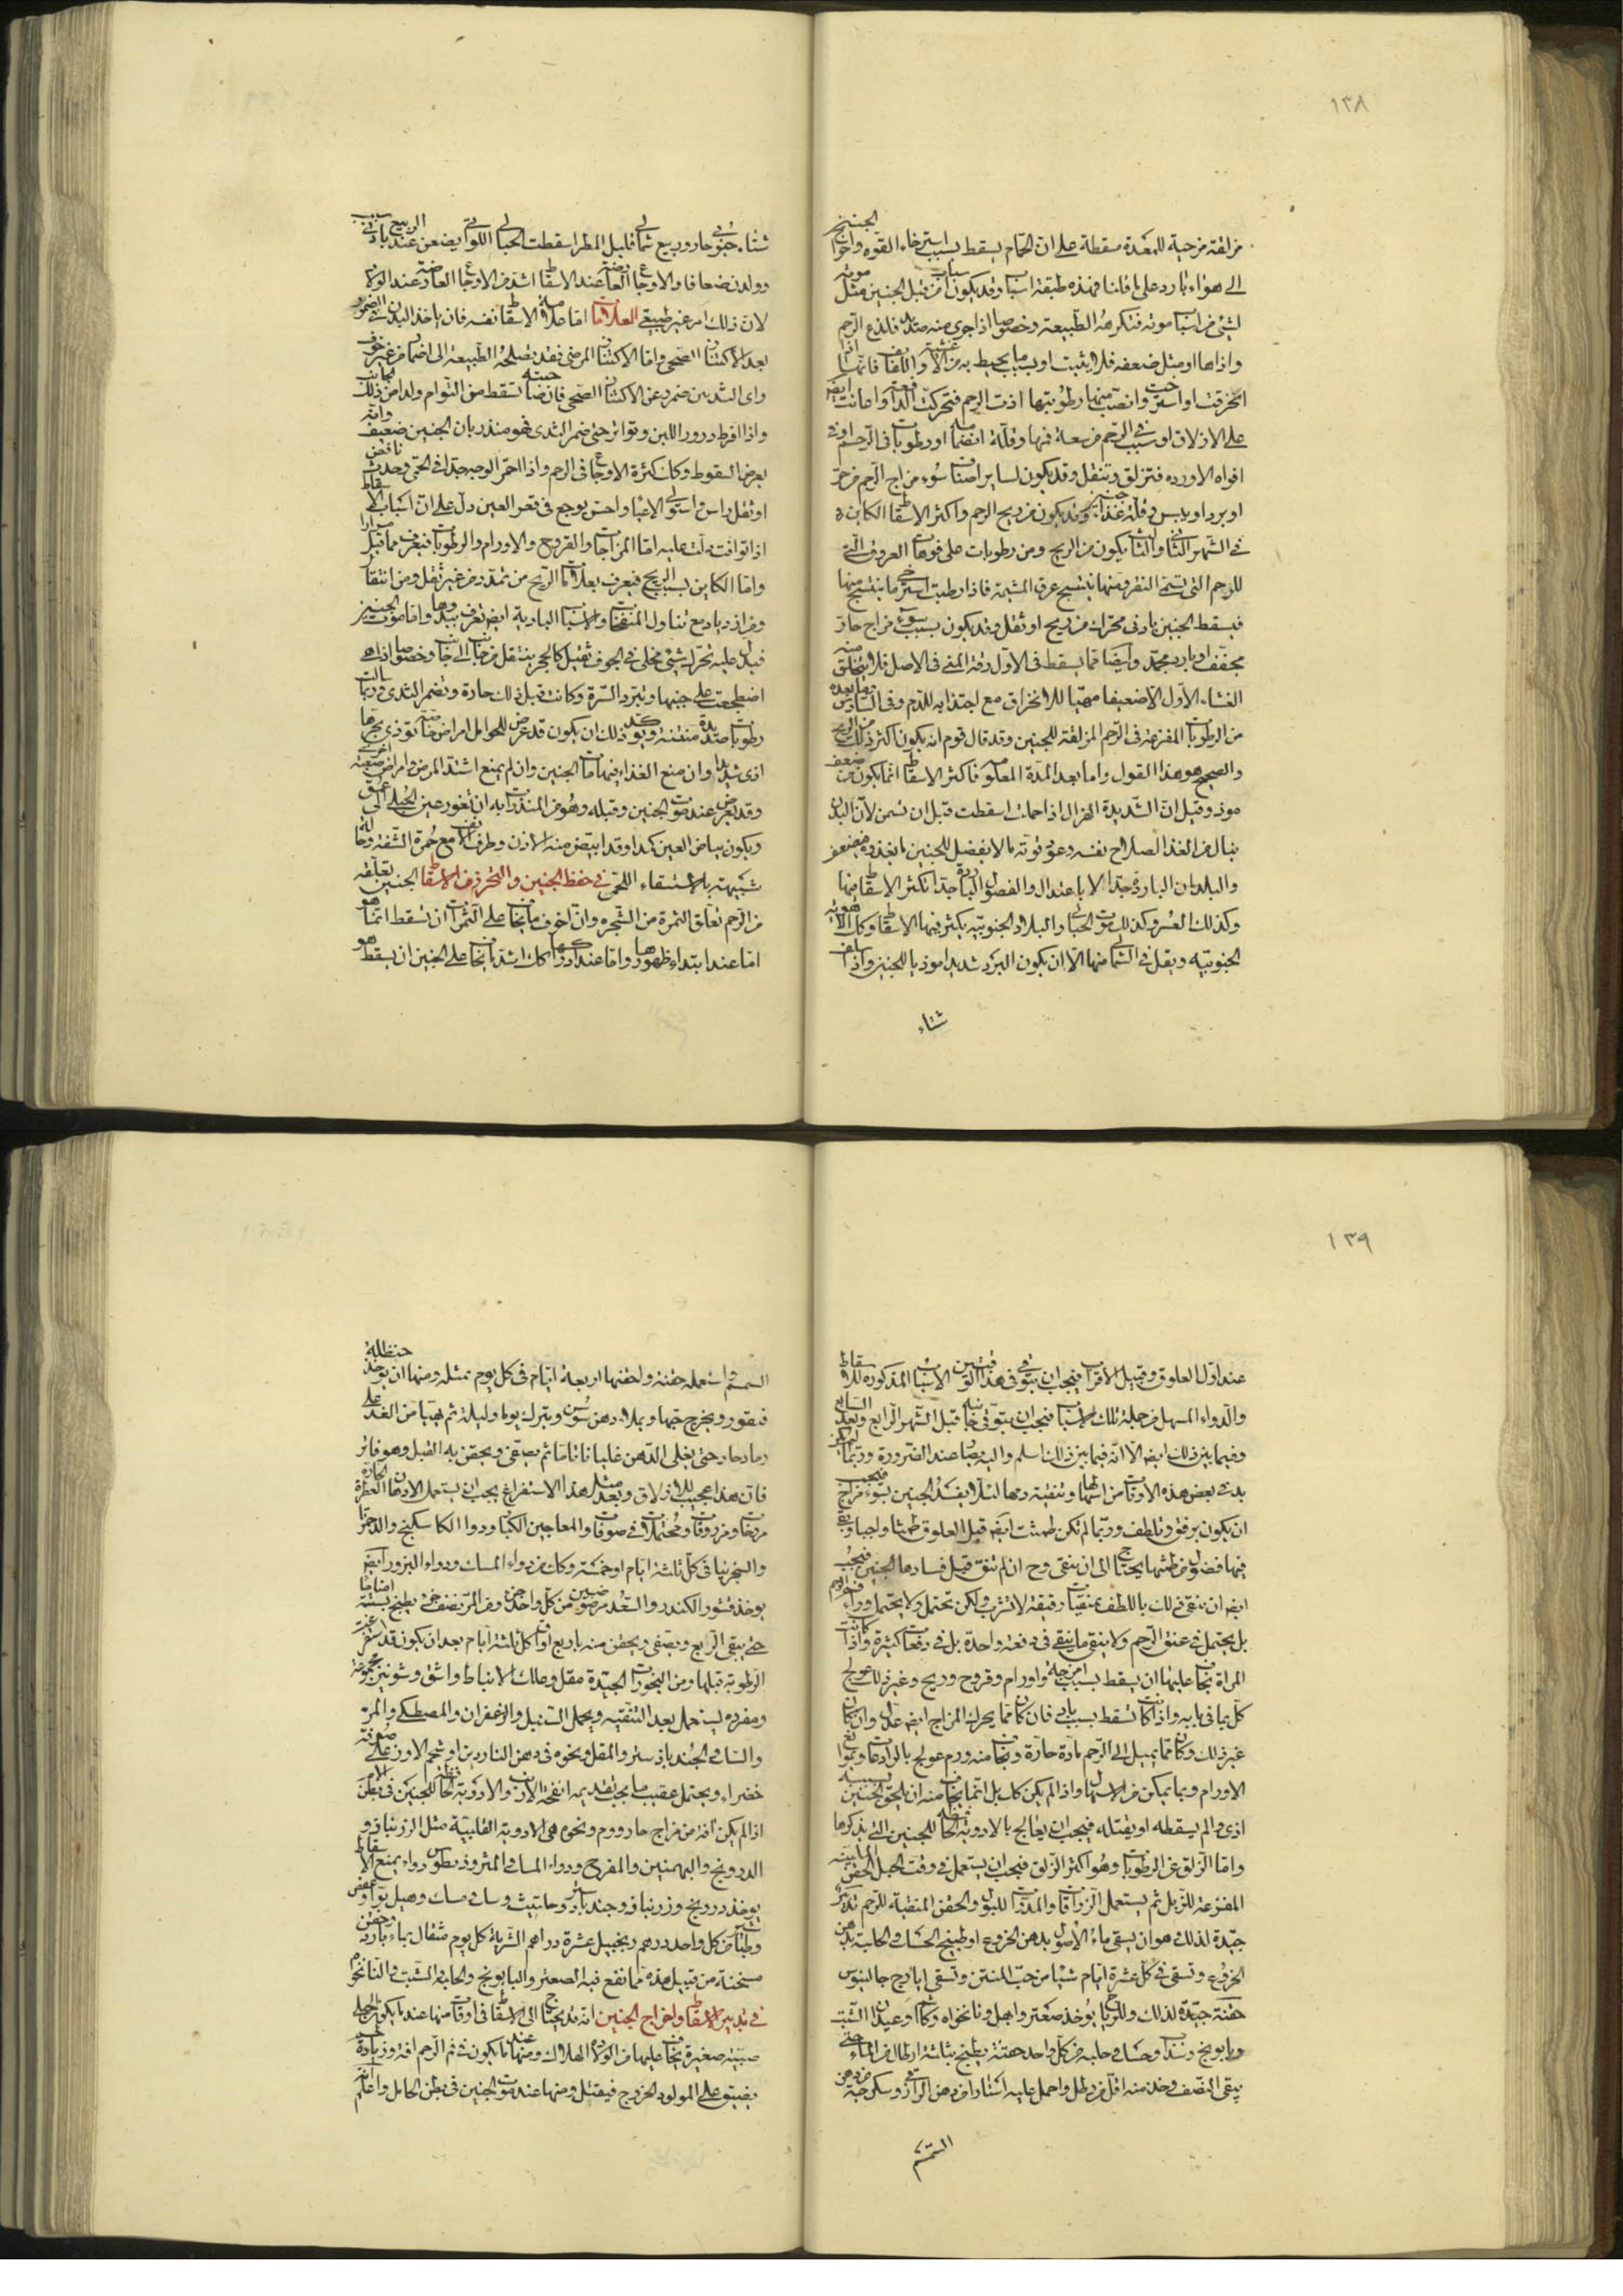 ١٣٨
مزلقة مرخية للمعدة مسقطة على ان الحمام يسقط بسبب استرخاء القوة واحواج الجنين
الى هواء بارد على ما قلنا فهذه طبقة اسباب وقد يكون اسباب من قبل الجنين مثل موته
لشئ من اسباب موته فتكرهه الطبيعة وخصوصا اذا جرى منه صديد فلذع الرحم
واذاها او مثل ضعفه فلا يثبت او بسبب ما يحيط به من الاغشية واللفائف فانها اذا
انخرقت او استرخت وانصبت منها رطوبتها اذت الرحم فتحركت الدافعة واعانت ايضا
على الازلاق او بسبب في الرحم من سعة فمها وقلة انضمامه او رطوبات في الرحم او في
افواه الاوردة فتزلق وتثقل وقد يكون لسائر اصناف سوء مزاج الرحم من حر
او برد او يبس وقلة غذاء للجنين وقد يكون من ريح الرحم واكثر الاسقاط الكاينة
في الشهر الثاني والثالث يكون من الريح ومن رطوبات على فوهات العروق التي
للرحم التي تسمى النقر ومنها ينتسج عرق المشيمة فاذا رطبت استرخى ما ينتسج منها
فيسقط الجنين بادنى محرك من ريح او ثقل وقد يكون بسبب سوء مزاج حار
مجفف او بارد مجمد وايضا مما يسقط في الاول رقة المني في الاصل فلا يتخلق منه
الغشاء الاول الا ضعيفا مهيا للانخراق مع اجتذابه للدم وفي السادس وما بعده
من الرطوبات المفرعة في الرحم المزلقة للجنين وقد قال قوم انه يكون اكثر ذلك من الريح
والصحيح هو هذا القول واما بعد المدة المعلومة فاكثر الاسقاط انما يكون من ضعف
موذ وقيل ان الشديدة الهزال اذا حملت اسقطت قبل ان تسمن لان البدن
ينال من الغذا لصلاح نفسه وعود قوته ما لا يفضل للجنين ما يغذوه فيضعف
والبلدان الباردة جدا لا باعتدال والفصول الباردة جدا تكثر الاسقاط فيها
وكذلك العسر وكذلك موت الحبالى والبلاد الجنوبية يكثر فيها الاسقاط وكذلك الاهوية
الجنوبية ويقل في الشمالي منها الا ان يكون البرد شديدا موذيا للجنين واذا سلف
شتاء
شتاء جنوبي حار وربيع شمالي قليل المطر اسقطت الحبالى اللواتي يضعن عند الربيع بادنى سبب
وولدن ضعافا والاوجاع العارضة عند الاسقاط اشد من الاوجاع العارضة عند الولادة
لان ذلك امر غير طبيعي العلامات اما علامة الاسقاط نفسه فان ياخذ الثدي في الضمور
بعد الاكتناز الصحي واما الاكتناز المرضي فقد تصلحه الطبيعة الى اضمار من غير خوف
واي الثديين ضمر وعن الاكتناز الصحي فان صاحبته تسقط من التوام ولدا من ذلك الجانب
واذا افرط درور اللبن وتواتر حتى ضمر الثدي فهو منذر بان الجنين ضعيف وانه
بعرض السقوط وكذلك كثرة الاوجاع في الرحم واذا احمر الوجه جدا في الحمى وحدث نافض
او ثقل راس واستولى الاعياء واحس بوجع في قعر العين دل على ان اسباب الاسقاط
اذا توافت دلت عليه اما المزاجات والقروح والاورام والرطوبات فتعرف مما قيل مرارا
واما الكاين بسبب الريح فيعرف بعلامات الريح من تمدد من غير ثقل ومن انتقال
ومن ازدياد مع تناول المنفخات والاسباب البادية ايضا تعرف بيدوها واما موت الجنين
فيدل عليه تحرك شئ مخلى في الجوف ثقيل كالحجر ينتقل من جانب الى جانب وخصوصا اذا هي
اضطجعت على جنبها وتبرد السرة وكانت قبل ذلك حارة وتضمر الثدي وربما سالت
رطوبات صديدية منتنة ويؤكد ذلك ان يكون قد عرض للحوامل امراض صعبة تؤذي بحرها
اذى شديدا وان منع الغذا فيها مات الجنين وان لم يمنع اشتد المرض وامراض اخرى صعبة
وقد يعرض عند موت الجنين وقبله وهو من المنذرات به ان تغور عين الحبلى الى عمق
ويكون بياض العين كمدا وقد ابيض منه الاذن وطرف الانف مع حمرة الشفة وحالة
شبيهة بالاستسقاء اللحمي في حفظ الجنين والتحرز من الاسقاط الجنين تعلقه
من الرحم تعلق الثمرة من الشجرة وان اخوف ما يخاف على الثمرات ان تسقط انما هو
اما عند ابتداء ظهورها واما عند ادراكها كذلك اشد ما يخاف على الجنين ان يسقط هو
١٣٩
عند اول العلوق وقبيل الاقراب فيجب ان يتوقى في هذين الوقتين الاسباب المذكورة للاسقاط
والدواء المسهل من جملة تلك الاسباب فيجب ان يتوقى جانبه قبل الشهر الرابع وبعد السابع
وفيما بين ذلك ايضا الا انه فيما بين ذلك اسلم واليه يصار عند الضرورة وربما لم يكن
بد في بعض هذه الاوقات من اسهالها وتنقية دمها لئلا يفسد الجنين بسوء مزاج فيجب
ان يكون برفق وتلطف وربما لم تكن طمثت ايضا قبل العلوق طمثا واجبا وبقي
فيها فضول من طمثها يحتاج الى ان ينقى وح ان لم تنق قبل فسادها الجنين فيجب
ايضا ان ينقى ذلك باللطف بمنقيات رقيقة لا تشرب ولكن تحتمل ولا يحتمل وراء فم الرحم
بل يحتمل في عنق الرحم ولا ينقى ما ينقى في دفعة واحدة بل في دفعات كثيرة واذا كانت
المراة يخاف عليها ان يسقط بسبب امزجة واورام وقروح وريح وغير ذلك عولج
كل بما في بابه واذا كانت تسقط بسبب بادي فان كان مما يحرك المزاج ايضا عدل وان كان
غير ذلك وكان مما يميل الى الرحم مادة حارة ويخاف منه ورم عولج بالرادعات وتوابع
الاورام وبما يمكن من الاسهال واذا لم يكن كذلك بل انما يخاف منه ان يلحق الجنين بسببه
اذى وان لم يسقطه او يقتله فيجب ان يعالج بالادوية الحافظة للجنين التي نذكرها
واما الزلق عن الرطوبات وهو اكثر الزلق فيجب ان يستعمل في وقت الحبل الحقن الملينة
المفرغة للزبل ثم يستعمل الزراقات والمدرات للبول والحقن المنقية للرحم تدابير
جيدة لذلك هو ان يسقى ماء الاصول بدهن الخروع او طبيخ الحسك والحلبة بدهن
الخروع وتسقى في كل عشرة ايام شيئا من حب المنتن وتسقى ايارج جالينوس
حقنة جيدة لذلك وللرياح يوخذ صعتر وابهل ونانخواه وكاشم وعيدان الشبت
وبابونج وسداب وحسك وحلبة من كل واحد حفنة يطبخ بثلثة ارطال من الماء حتى
يبقى النصف وخذ منه اقل من رطل واحمل عليه استارا من دهن الرازقي وسكرجة من دهن
السمسم
السمسم واستعمله حقنة واحقنها اربعة ايام في كل يوم بمثله ومنها ان يوخذ حنظلة
فيقور ويخرج حبها ويملاء دهن سوسن ويترك يوما وليلة ثم يهيا من الغد على
رماد حار حتى يغلى الدهن غليانا تاما ثم يصفى ويحقن به القبل وهو فاتر
فان هذا عجيب للازلاق وبعد مثل هذا الاستفراغ يجب ان يستعمل الادهان العطرة الحارة
مروخات ومزروقات ومحتملات في صوفات والمعاجين الكبار ودواء الكاسكبينج والدحمرثا
والسجزنيا في كل ثلثة ايام او خمسة وكذلك من دواء المسك ودواء البزور ايضا
يوخذ قشور الكندر والسعد مرضوضين من كل واحد جزء ومن المر نصف جزء يطبخ بستة اضعافها ماء
حتى يبقى الربع ويصفى ويحقن منه باربع اواق كل ثلثة ايام بعد ان يكون قد استفرغت
الرطوبة قبلها ومن البخورات الجيدة مقل وعلك الانباط واشق وشونيز مجموعة
ومفردة يستعمل بعد التنقية ويحمل السنبل والزعفران والمصطكى والمر
والمسك والجندبادستر والمقل ونحوه في دهن الناردين او شحم الاوز على صوفة
خضراء ويحتمل عقيب ما يجب تقديمه انفحة الارنب والادوية الحافظة للجنين في بطن الام
اذا لم يكن افة من مزاج حار وورم ونحوه هي الادوية القلبية مثل الزرنباد و
الدرونج والبهمنين والمفرح ودواء المسك والمثروديطوس دواء يمنع الاسقاط
يوخذ درونج وزرنباد وجندبادستر وحلتيت وسك ومسك وهيل بوا وعفص
وطباشير من كل واحد درهم زنجبيل عشرة دراهم الشربة كل يوم مثقال بماء بارد وحقن
مسخنة من قبيل هذه مما نقع فيه الصعتر والبابونج والحلبة والشبت والنانخواه
في تدبير الاسقاط واخراج الجنين انه قد يحتاج الى الاسقاط في اوقات منها عند ما يكون الحبلى
صبية صغيرة يخاف عليها من الولادة الهلاك ومنها عند ما يكون في فم الرحم افة وزيادة لحم
يضيق على المولود الخروج فيقتل ومنها عند موت الجنين في بطن الحامل واعلم انه